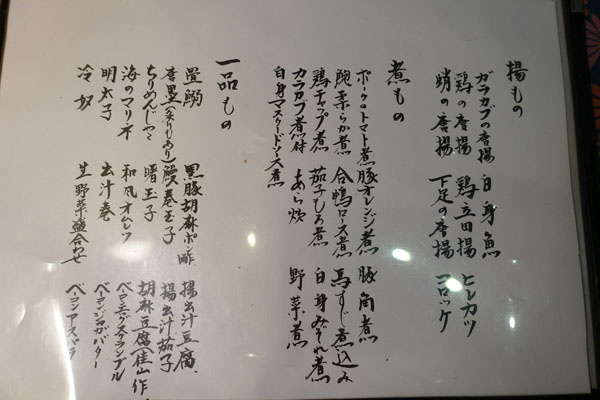 揚もの
ガラカブの唐揚 白身魚 ヒレカツ
鶏の唐揚 鶏立田揚 コロッケ
蛸の唐揚 下足の唐揚
煮もの
ポークトマト煮 豚オレンジ煮 豚角煮
鮑柔らか煮 合鴨ロース煮 馬すじ煮込み
鶏チャップ煮 茄子もろ煮 白身みぞれ煮
ガラカブ煮付 あら炊 野菜煮
白身マスタードソース煮
一品もの
畳鰯 黒豚胡麻ポン酢 揚出汁豆腐
唐墨(炙り) 鰻巻玉子 揚出汁茄子
ちりめんじゃこ 曙玉子 胡麻豆腐(佳山作)
海のマリネ 和風オムレツ ベーコンエッグスクランブル
明太子 出汁巻 ベーコンジャガバター
冷奴 生野菜盛合わせ ベーコンアスパラ